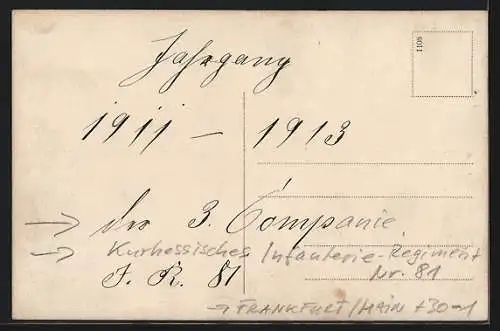 Jahrgang
1106
1911 – 1913
der 3. Companie
Kurhessisches Infanterie-Regiment
Nr. 81
I. R. 81
→ FRANKFURT/MAIN